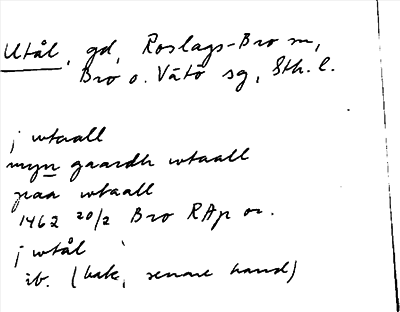 Utål, gd, Roslags-Bro sn,
Bro o. Vätö sg, Sth. l.
j wtaall
myn gaardh wtaall
paa wtaall
1462 20/2 Bro RAp or.
j wtål
ib. (bak, senare hand)